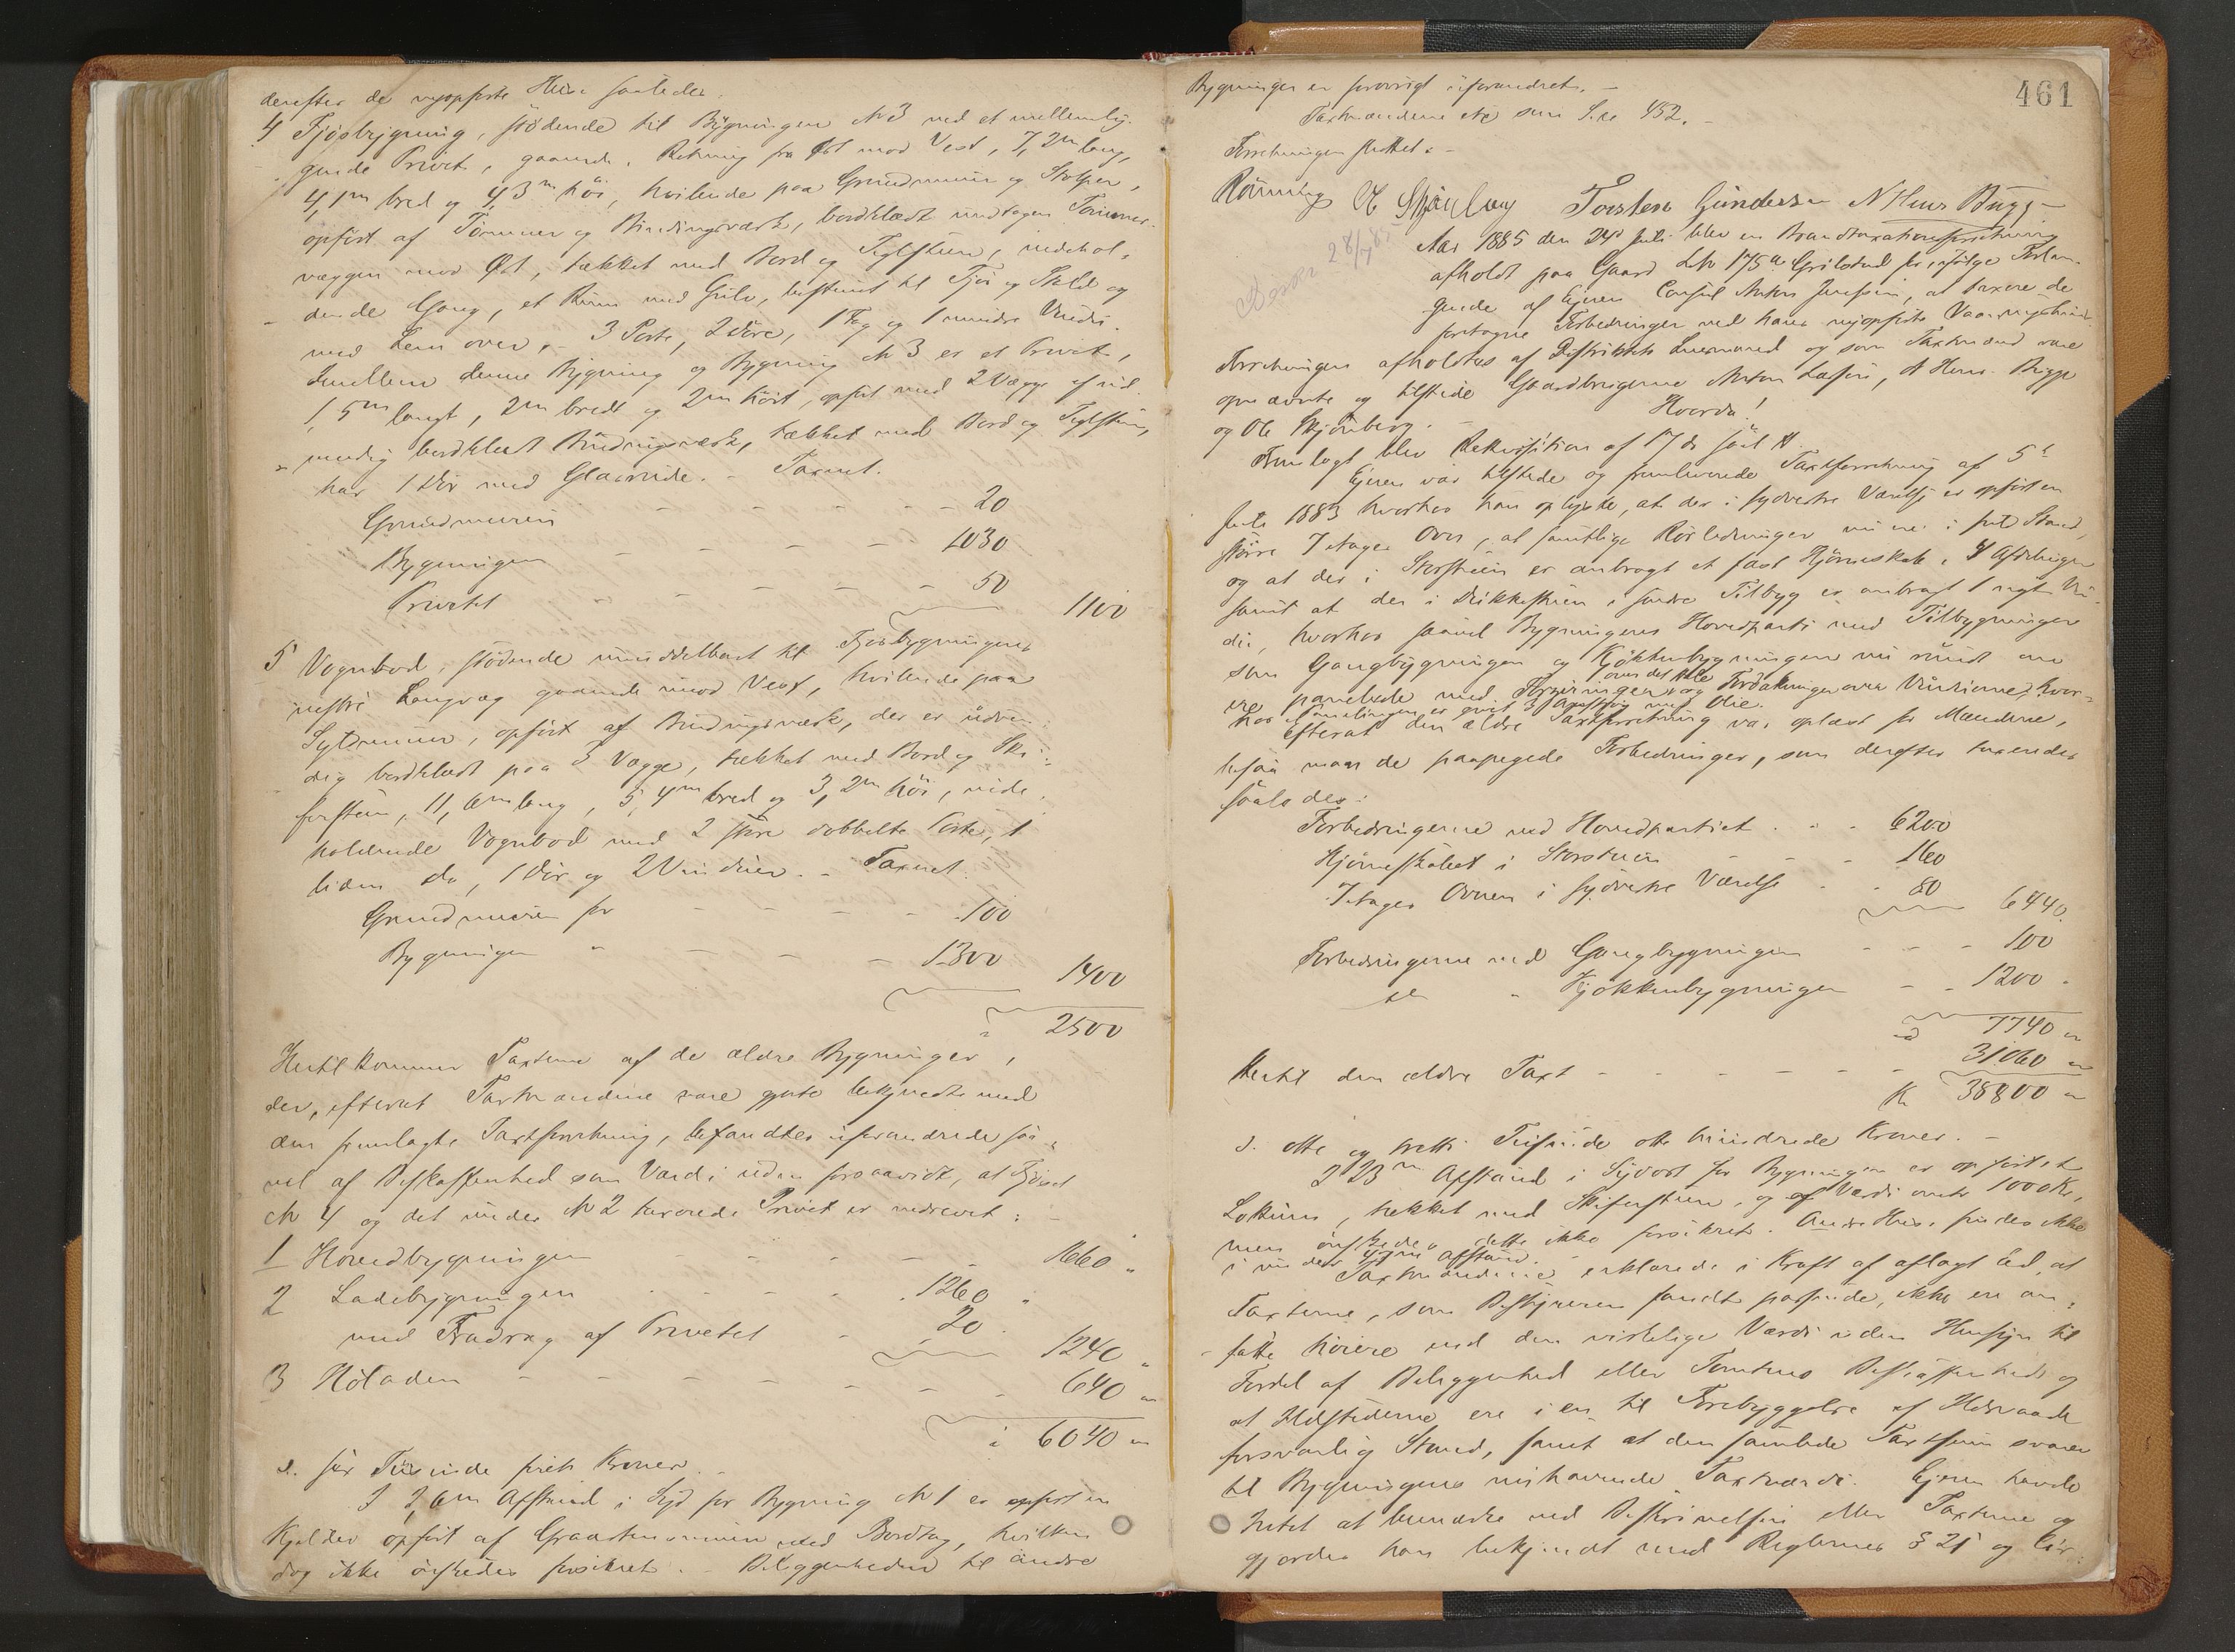 derefter de nyopførte Huse saaledes.
4 Fjøsbygning, stødende til Bygningen № 3 med et mellemlig-
gende Privet, gaaende i Retning fra Øst mod Vest, 7,2 m lang,
4,1 m bred og 4,3 m høi, hvilende paa Grundmuur og Stolper,
opført af Tømmer og Bindingsværk, bordklædt undtagen Tømmer-
væggen mod Øst, tækket med Bord og Teglsteen, indehol-
dende Gang, et Rum med Gulv, bestemt til Fjøs og Stald og
med Lem over, 3 Porte, 2 Døre, 1 Fag og 1 mindre Vindu.
Imellem denne Bygning og Bygning № 3 er et Privet,
1,5 m langt, 2 m bredt og 2 m høit, opført med 2 Vægge af ud-
vendig bordklædt Bindingsværk, tækket med Bord og Teglsteen,
har 1 Dør med Glasrude. - Taxeret.
Grundmuren - - - - - 20
Bygningen - - - - 1030
Privetet - - - - 50
1100
5 Vognbod, stødende umiddelbart til Fjøsbygningens
vestre Langvæg gaaende mod Vest, hvilende paa
Syldmuur, opført af Bindingsværk, der er udven-
dig bordklædt paa 3 Vægge, tækket med Bord og Ski-
fersteen, 11,6 m lang, 5,4 m bred og 3,2 m høi, inde-
holdende Vognbod med 2 store dobbelte Porte, 1
liden do, 1 Dør og 2 Vinduer. - Taxeret.
Grundmuren for - - - - 100
Bygningen " - - - 1300
1400
2500
Hertil kommer Taxterne af de ældre Bygninger,
der, efterat Taxtmændene vare gjorte bekjendte med
den fremlagte Taxtforretning, befandtes uforandrede saa-
vel af Beskaffenhed som Værdi uden forsaavidt, at Fjøset
№ 4 og det under № 2 taxerede Privet er nedrevet: -
1 Hovedbygningen - - - 1660 "
2 Ladebygningen - - - 1260 "
med Fradrag af Privetet - 20
1240 "
3 Høladen - - - - - - 640 "
6040 "
s. sex Tusinde firti Kroner.
I 2,6 m Afstand i Syd for Bygning № 1 er opført en
Kjelder opført af Graasteensmuur med Bordtag, hvilken
dog ikke ønskedes forsikret. - Beliggenheden til andre
461
Bygninger er forøvrigt uforandret. -
Taxtmændene etc som S. 452. -
Forretningen sluttet. -
Rønning O Skjønberg Torsten Gundersen N Hens Bugge
Aar 1885 den 24de Juli blev en Brandtaxationsforretning
afholdt paa Gaard L.№ 175a Grilstad for, ifølge Forlan-
gende af Eieren Consul Anton Jenssen, at taxere de
foretagne Forbedringer ved hans nyopførte Vaaningshuus.
Forretningen afholdtes af Distriktets Lensmand og som Taxtmænd vare
opnævnte og tilstede Gaardbrugerne Anton Larsen, A Hens. Bugge
og Ole Skjønberg. - Hvorda!
Fremlagt blev Rekvisition af 17 ds saal.
Eieren var tilstede og fremleverede Taxtforretning af 5te
Juli 1883 hvorhos han oplyste, at der i sydvestre Værelse er opført en
større 7 Etages Ovn, at samtlige Rørledninger nu ere i fuld Stand,
og at der i Storstuen er anbragt et fast Hjørneskab i 4 Afdelinger
samt at der i Drikkestuen i søndre Tilbyg er anbragt 1 nyt Vin-
du, hvorhos saavel Bygningens Hovedparti med Tilbygninger
som Gangbygningen og Kjøkkenbygningen nu rundt om
ere panelede med Forziringer og Fordakninger over Vinduerne, hvor-
over det Hele
hos Panelingen er givet 3 Paastrøg med Olie.
Efterat den ældre Taxtforretning var oplæst for Mændene,
besaa man de paapegede Forbedringer, som derefter taxeredes
saaledes:
Forbedringerne ved Hovedpartiet . . . 6200
Hjørneskabet i Storstuen - - - 160
7 Etages Ovnen i sydvestre Værelse - 80
6440.
Forbedringerne ved Gangbygningen - - - 100
do " Kjøkkenbygningen - - 1200
7740 "
Hertil den ældre Taxt - - - - - - 31060 "
Kr 38800 "
s. otte og tretti Tusinde otte hundrede Kroner. -
I 23 m Afstand i Sydost for Bygningen er opført et
Lokum, tækket med Skifersteen, og af Værdi under 100 Kr,
men ønskedes dette ikke forsikret. Andre Huse findes ikke
i mindre Afstand. -
Taxtmændene erklærede i Kraft af aflagt Ed, at
Taxterne, som Bestyreren fandt passende, ikke ere an-
satte høiere end den virkelige Værdi uden Hensyn til
Fordel af Beliggenhed eller Tomtens Beskaffenhed og
at Ildstederne ere i en til Forebyggelse af Ildsvaade
forsvarlig Stand, samt at den samlede Taxtsum svarer
til Bygningens nuhavende Taxtværdi. Eieren havde
Intet at bemærke ved Beskrivelsen eller Taxterne og
gjordes han bekjendt med Reglernes § 21 og Cir-